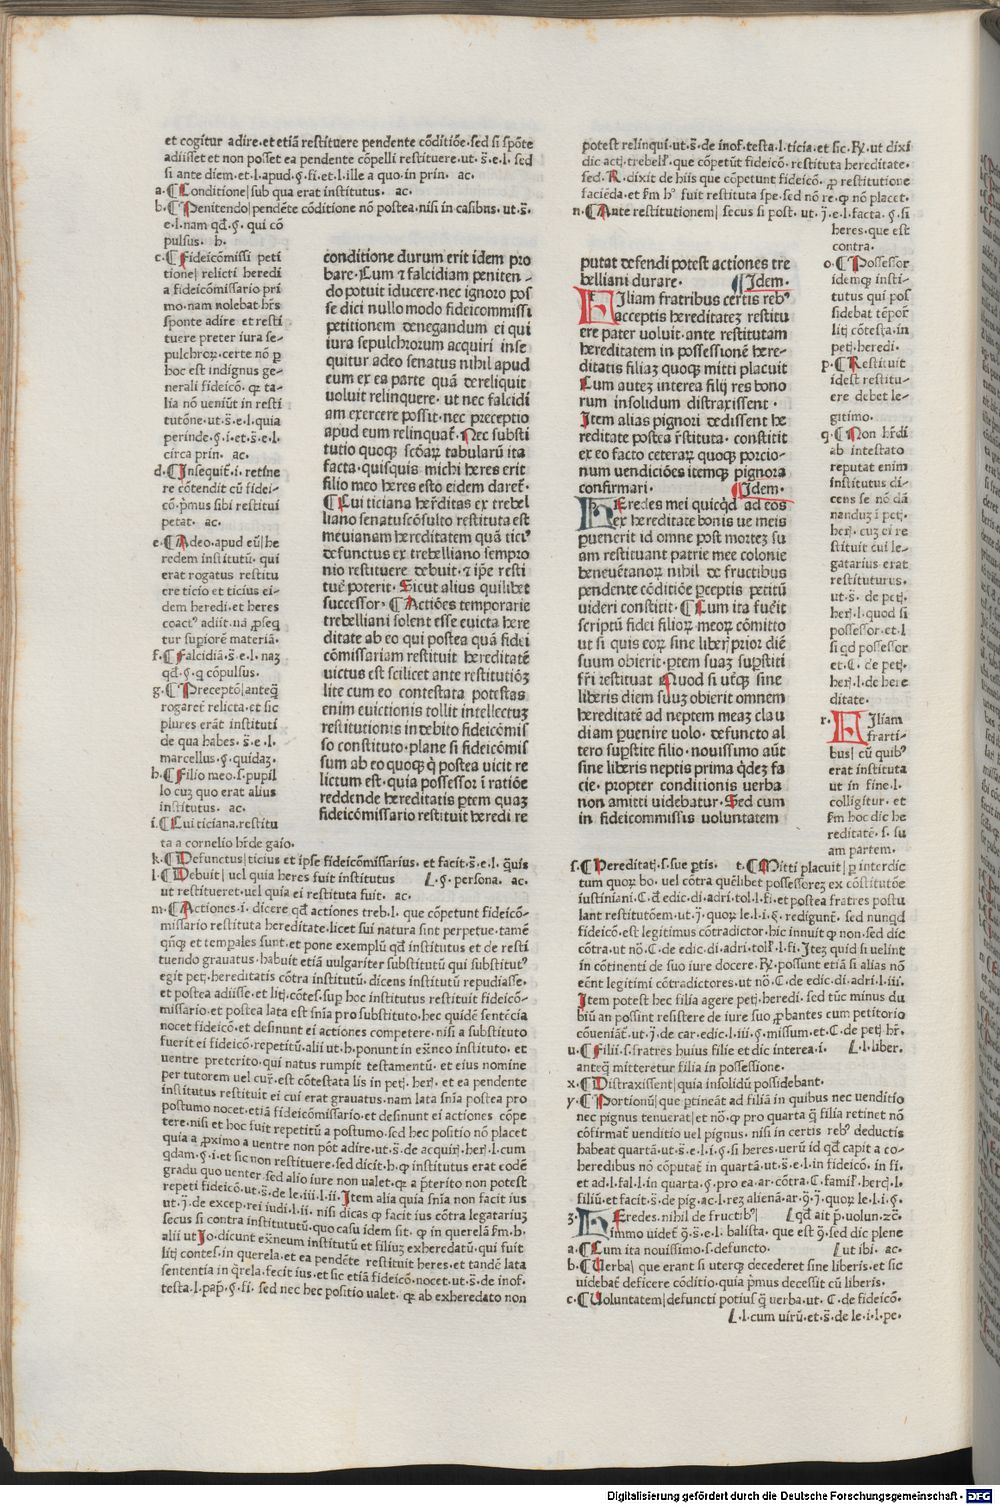 et cogitur adire·et etiā restituere pendente cōditiōe·sed si spōte
adiisset et non posset ea pendente cōpelli restituere·ut·s̄·e·l· sed
si ante diem·et·l·apud·§·fi·et·l·ille a quo·in prin· ac·
a·¶Conditione|sub qua erat institutus· ac·
b·¶Penitendo|pendēte cōditione nō postea·nisi in casibus· ut·s̄·
e·l·nam qd̄·§· qui cō
pulsus· h·
c·¶Fideicōmissi peti
tione|relicti heredi
a fideicōmissario pri
mo·nam nolebat hr̄s
sponte adire et resti
tuere preter iura se-
pulchroꝝ·certe nō ꝓ
hoc est indignus ge-
nerali fideicō· qꝛ ta-
lia nō ueniūt in resti
tutōne·ut·s̄·e·l·quia
perinde·§·i·et·s̄·e·l·
circa prin· ac·
d·¶Insequit᷑·i·retine
re cōtendit cū fidei-
cō·pͥmus sibi restitui
petat· ac·
e·¶Adeo·apud eū|he
redem institutū· qui
erat rogatus restitu
ere ticio et ticius ei-
dem heredi·et heres
coactꝰ adiit·nā ꝓseq
tur supiorē materiā·
f·¶Falcidiā·s̄·e·l·naꝫ
qd̄·§·q cōpulsus·
g·¶Preceptō|anteq̄
rogaret᷑ relicta·et sic
plures erāt instituti
de qua habes·s̄·e·l·
marcellus·§·quidaꝫ·
h·¶Filio meo·s·pupil
lo cuꝫ quo erat alius
institutus· ac·
i·¶Cui ticiana·restitu
ta a cornelio hr̄de gaio·
k·¶Defunctus|ticius et ipse fideicōmissarius· et facit·s̄·e·l· q̄uis
l·¶Debuit|uel quia heres fuit institutus L·§·persona· ac·
ut restitueret·uel quia ei restituta fuit· ac·
m·¶Actiones·i·dicere qd̄ actiones treb·l· que cōpetunt fideicō-
missario restituta hereditate·licet sui natura sint perpetue·tamē
qn̄qꝫ et temꝑales sunt·et pone exemplū qd̄ institutus et de resti
tuendo grauatus·habuit etiā uulgariter substitutū qui substitutꝰ
egit petj·hereditatis cōtra institutū·dicens institutū repudiasse·
et postea adiisse·et litj·cōtes·sup hoc institutus restituit fideicō-
missario·et postea lata est snīa pro substituto·hec quidē sentēcia
nocet fideicō·et desinunt ei actiones competere·nisi a substituto
fuerit ei fideicō·repetitū·alii ut·h·ponunt in extͣneo instituto· et
uentre preterito·qui natus rumpit testamentū·et eius nomine
per tutorem uel cur·est cōtestata lis in petj·herj· et ea pendente
institutus restituit ei cui erat grauatus·nam lata snīa postea pro
postumo nocet·etiā fideicōmissario·et desinunt ei actiones cōpe
tere·nisi et hoc fuit repetitū a postumo·sed hec positio nō placet
quia a ꝓximo a uentre non pōt adire·ut·s̄·de acquirj·herj·l·cum
qdam·§·i·et sic non restituere·sed dicit·h·ꝙ institutus erat eodē
gradu quo uenter·sed alio iure non ualet·qꝛ a ꝑterito non potest
repeti fideicō·ut·s̄·de le·iii·l·ii·Item alia quia snīa non facit ius
ut·j̄·de excep·rei iudi·l·ii· nisi dicas ꝙ facit ius cōtra legatariuꝫ
secus si contra institututū·quo casu idem sit·ꝙ in querelā fm·h·
alii ut Jo·dicunt extͣneum institutū et filiuꝫ exheredatū·qui fuit
litj contes·in querela·et ea pendēte restituit heres·et tandē lata
sententia in q̄rela·fecit ius·et sic etiā fideicō·nocet·ut·s̄·de inof·
testa·l·pap̄·§·fi· sed nec hec positio ualet· qꝛ ab exheredato non
conditione durum erit idem pro
bare·Cum ⁊ falcidiam peniten-
do potuit iducere·nec ignoro pos
se dici nullomodo fideicommissi
petitionem denegandum ei qui
iura sepulchrorum acquiri inse
quitur adeo senatus nihil apud
eum ex ea parte quā dereliquit
uoluit relinquere· ut nec falcidi
am exercere possit·nec preceptio
apud eum relinquat᷑·Nec substi
tutio quoqꝫ scōaꝝ tabularū ita
facta·quisquis michi heres erit
filio meo heres esto eidem daret᷑·
¶Cui ticiana her̄ditas ex trebel
liano senatuscōsulto restituta est
meuianam hereditatem quā ticiꝰ
defunctus ex trebelliano sempro
nio restituere debuit·⁊ ip̄e resti
tuē poterit·Sicut alius quilibet
successor·¶Actiōes temporarie
trebelliani solent esse euicta here
ditate ab eo qui postea quā fidei
cōmissariam restituit hereditatē
uictus est scilicet ante restitutiōꝫ
lite cum eo contestata potestas
enim euictionis tollit intellectuꝫ
restitutionis indebito fideicōmis
so constituto·plane si fideicōmis
sum ab eo quoqꝫ q̄ postea uicit re
lictum est·quia possessor ī ratiōe
reddende hereditatis ptem quaꝫ
fideicōmissario restituit heredi re
potest relinqui·ut·s̄·de inof·testa·l·ticia·et sic·Ry̅·ut dixi
dic actj·trebell'·que cōpetūt fideicō·restituta hereditate·
sed·R·dixit de hiis que cōpetunt fideicō· ꝓ restitutione
facieda·et fm hͦ fuit restituta spe·sed nō re·ꝙ nō placet·
n·¶Ante restitutionem| secus si post· ut·j̄·e·l·facta·§·si
heres·que est
contra·
o·¶Possessor
idemqꝫ insti-
tutus qui pos
sidebat tēpor᷑
litj cōtesta·in
petj·heredi·
p·¶Restituit
idest restitu-
ere debet le-
gitimo·
q·¶Non hr̄di
ab intestato
reputat enim
institutus di-
cens se nō dā
nanduꝫ ī petj·
herj·cuꝫ ei re
stituit cui le-
gatarius erat
restituturus·
ut·s̄·de petj·
herj·l·quod si
possessor·et·l
si qd possessor
et·C·de petj·
herj·l·de here
ditate·
putat defendi potest actiones tre
belliani durare· ¶Idem·
FIliam fratribus certis rebꝰ
acceptis hereditateꝫ restitu
ere pater uoluit·ante restitutam
hereditatem in possessionē here-
ditatis filiaꝫ quoqꝫ mitti placuit
Cum auteꝫ interea filij res bono
rum insolidum distraxissent·
Item alias pignori dedissent he
reditate postea r̄stituta·constitit
ex eo facto ceteraꝝ quoqꝫ porcio-
num uendiciōes itemqꝫ pignora
confirmari· ¶Idem·
HEredes mei quicqd̄ ad eos
ex hereditate bonis ue meis
puenerit id omne post morteꝫ su
am restituant patrie mee colonie
beneuētanoꝝ nihil de fructibus
pendente cōditiōe ꝑceptis petitū
uideri constitit·¶Cum ita fueīt
scriptū fidei filioꝝ meoꝝ cōmitto
ut si quis eoꝝ sine liberj prior diē
suum obierit·ptem suaꝫ supstiti
fr̄i restituat Quod si utͥqꝫ sine
liberis diem suuꝫ obierit omnem
hereditatē ad neptem meaꝫ clau
diam puenire uolo·defuncto al
tero supstite filio·nouissimo aūt
sine liberis neptis prima q̄dez fa
cie·propter conditionis uerba
non amitti uidebatur·Sed cum
in fideicommissis uoluntatem
r· FIliam
frarti-
bus|cū quibꝰ
erat instituta
ut in fine·l·
colligitur·et
fm hoc dic he
reditatē·s·su
am partem·
s·¶Hereditatj·s·sue ptis· t·¶Mitti placuit|ꝑ interdic
tum quoꝝ bo·uel cōtra quēlibet possessoreꝫ ex cōstitutōe
iustiniani·C·d̄ edic·di·adri·tol·l·fi·et postea fratres postu
lant restitutōem·ut·j̄·quoꝝ le·l·i·§·redigunt᷑·sed nunqd
fideicō·est legitimus cōtradictor·hic innuit ꝙ non·sed dic
cōtra·ut nō·C·de edic·di·adri·toll'·l·fi·Iteꝫ quid si uelint
in cōtinenti de suo iure docere·Ry̅·possunt etiā si alias nō
eēnt legitimi cōtradictores·ut nō·C·de edic·di·adri·l·iii·
Item potest hec filia agere petj·heredi·sed tūc minus du
biū an possint resistere de iure suo ꝓbantes cum petitorio
cōueniāt᷑·ut·j̄·de car·edic·l·iii·§·missum·et·C·de petj hr̄·
u·¶Filii·s·fratres huius filie et dic interea·i· L·l·liber·
anteq̄ mitteretur filia in possessione·
x·¶Distraxissent|quia insolidū possidebant·
y·¶Portionū|que ptineāt ad filiā in quibus nec uenditio
nec pignus tenuerat|et nō·ꝙ pro quarta q̄ filia retinet nō
cōfirmat᷑ uenditio uel pignus·nisi in certis rebꝰ deductis
habeat quartā·ut·s̄·e·l·i·§·si heres·uerū id qd̄ capit a co-
heredibus nō cōputat᷑ in quartā·ut·s̄·e·l·in fideicō·in fi·
et ad·l·fal·l·in quarta·§·pro ea·ar·cōtra·C·famil'·hercj·l·
filiū·et facit·s̄·de pig·ac·l·reꝫ alienā·ar·j̄·quoꝝ le·l·i·§·
z· HEredes·nihil de fructibꝰ| L qd̄ ait p̄·uolun·zc̄·
immo uidet᷑ ꝙ·s̄·e·l·balista·que est ꝙ·sed dic plene
a·¶Cum ita nouissimo·s·defuncto· L ut ibi· ac·
b·¶Uerba|que erant si uterqꝫ decederet sine liberis·et sic
uidebat᷑ deficere cōditio·quia pͥmus decessit cū liberis·
c·¶Uoluntatem|defuncti potius q̄ uerba·ut· C·de fideicō·
L·l·cum uirū·et·s̄·de le·i·l·pe·
Digitalisierung gefördert durch die Deutsche Forschungsgemeinschaft - DFG